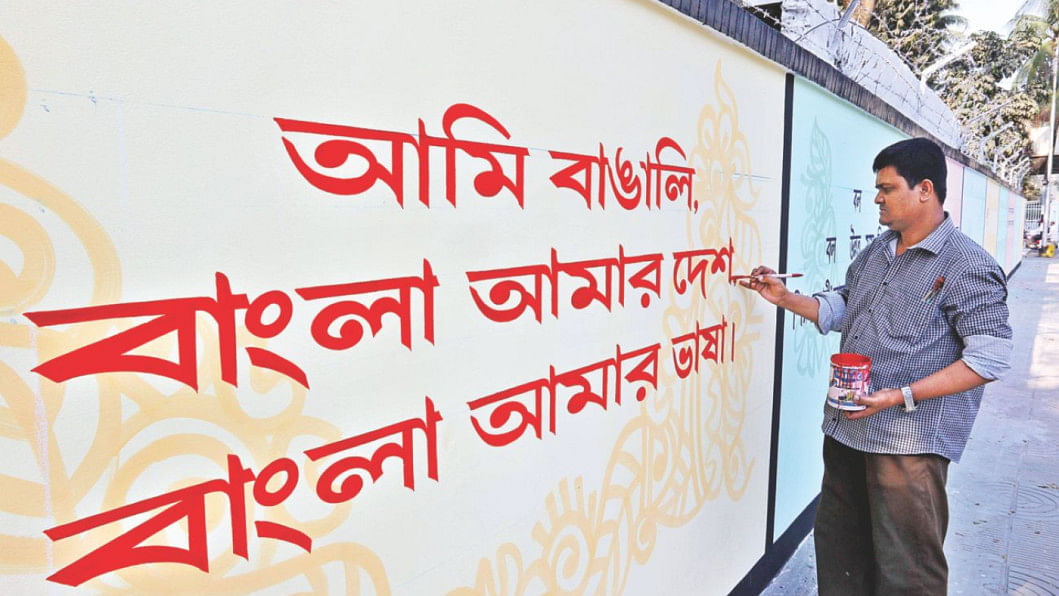 আমি বাঙালি,
বাংলা আমার দেশ
বাংলা আমার ভাষা।